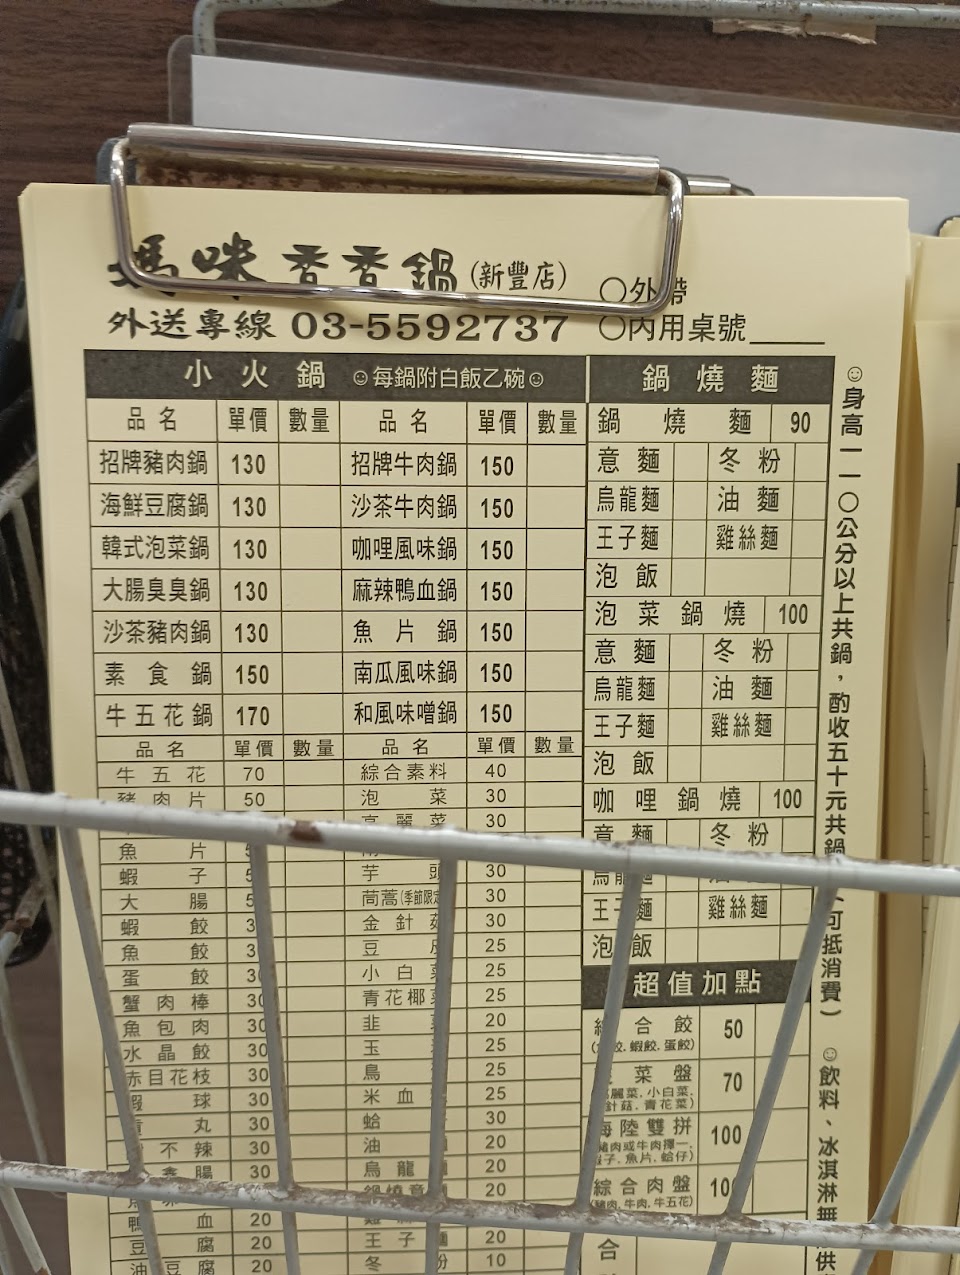 媽咪香香鍋(新豐店)
○外帶
外送專線 03-5592737
○內用桌號
小火鍋 ☺每鍋附白飯乙碗☺
品名 單價 數量 品名 單價 數量
招牌豬肉鍋 130 招牌牛肉鍋 150
海鮮豆腐鍋 130 沙茶牛肉鍋 150
韓式泡菜鍋 130 咖哩風味鍋 150
大腸臭臭鍋 130 麻辣鴨血鍋 150
沙茶豬肉鍋 130 魚片鍋 150
素食鍋 150 南瓜風味鍋 150
牛五花鍋 170 和風味噌鍋 150
品名 單價 數量 品名 單價 數量
牛五花 70 綜合素料 40
豬肉片 50 泡菜 30
高麗菜 30
魚片
蝦子 芋頭 30
大腸 茼蒿(季節限定 30
蝦餃 金針菇 30
魚餃 30 豆皮 25
蛋餃 30 小白菜 25
蟹肉棒 30 青花椰菜 25
魚包肉 30 韭 20
水晶餃 30 玉 25
赤目花枝 30 鳥 25
蝦球 30 米血 25
丸 30 蛤 30
不辣 30 油 20
鑫腸 30 烏龍麵 20
鍋燒意 20
鴨血 20
豆腐 20 王子麵 20
油豆腐 20 冬粉 10
鍋燒麵
鍋燒麵 90
意麵 冬粉
烏龍麵 油麵
王子麵 雞絲麵
泡飯
泡菜鍋燒 100
意麵 冬粉
烏龍麵 油麵
王子麵 雞絲麵
泡飯
咖哩鍋燒 100
意麵 冬粉
烏龍麵
王子麵 雞絲麵
泡飯
超值加點
綜合餃 50
(魚餃.蝦餃.蛋餃)
菜盤 70
高麗菜.小白菜.
金針菇.青花菜)
海陸雙拼 100
(豬肉或牛肉擇一,
蝦子.魚片.蛤仔)
綜合肉盤 100
(豬肉.牛肉.牛五花)
合
☺身高一一○公分以上共鍋，酌收五十元共鍋
可抵消費)
☺飲料、冰淇淋無
供